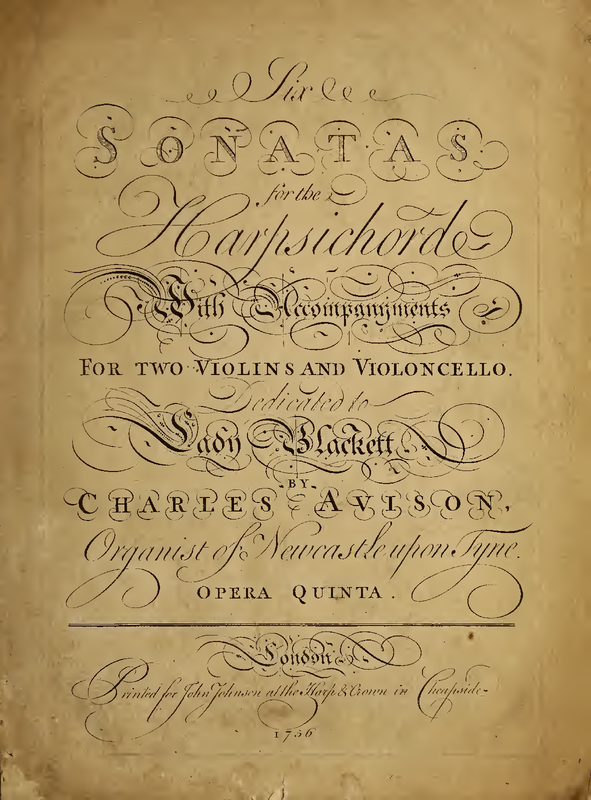 Six
SONATAS
for the
Harpsichord
With Accompanyments
FOR TWO VIOLINS AND VIOLONCELLO.
Dedicated to
Lady Blackett
BY
CHARLES AVISON,
Organist of Newcastle upon Tyne.
OPERA QUINTA.
London
Printed for John Johnson at the Harp & Crown in Cheapside
1756